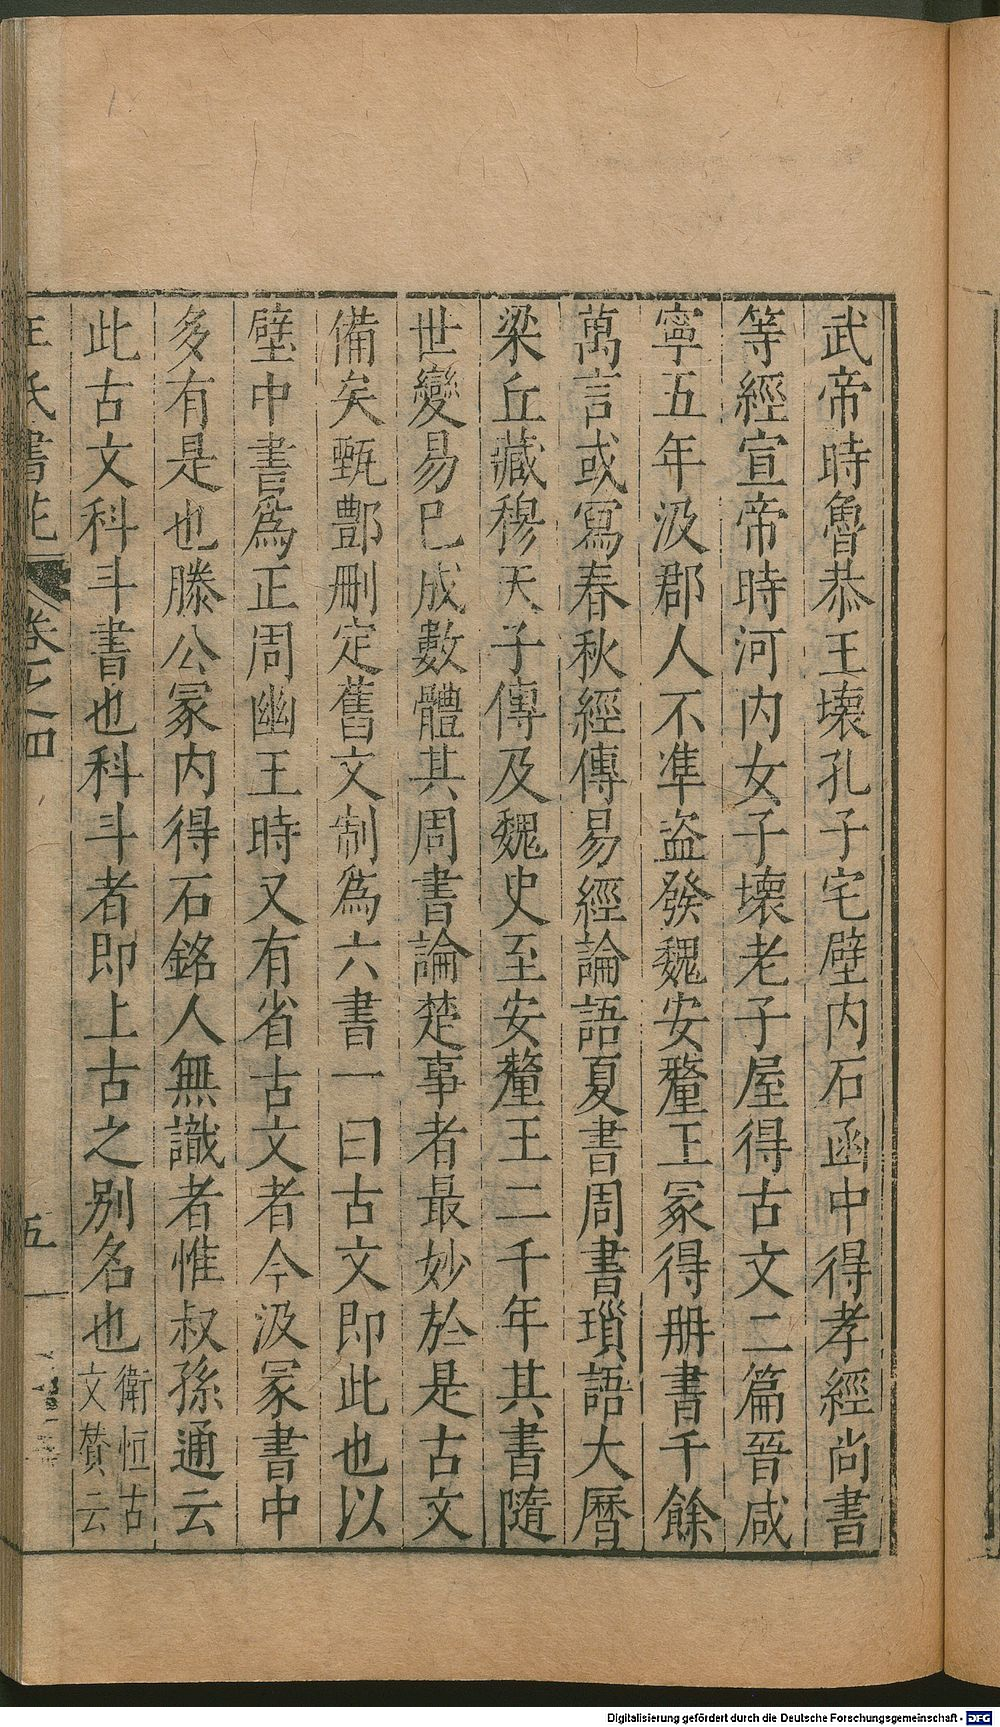 武帝時魯恭王壞孔子宅壁内石函中得孝經尚書
等經宣帝時河内女子壞老子屋得古文二篇晉咸
寧五年汲郡人不準盗發魏安釐王冢得册書千餘
萬言或寫春秋經傳易經論語夏書周書瑣語大曆
梁丘藏穆天子傳及魏史至安釐王二千年其書隨
世變易已成數體其周書論楚事者最妙於是古文
備矣甄酆刪定舊文制爲六書一曰古文即此也以
壁中書爲正周幽王時又有省古文者今汲冢書中
多有是也滕公冢内得石銘人無識者惟叔孫通云
此古文科斗書也科斗者即上古之别名也衛恒古
文贊云
王氏書苑
卷之四
五
Digitalisierung gefördert durch die Deutsche Forschungsgemeinschaft - DFG